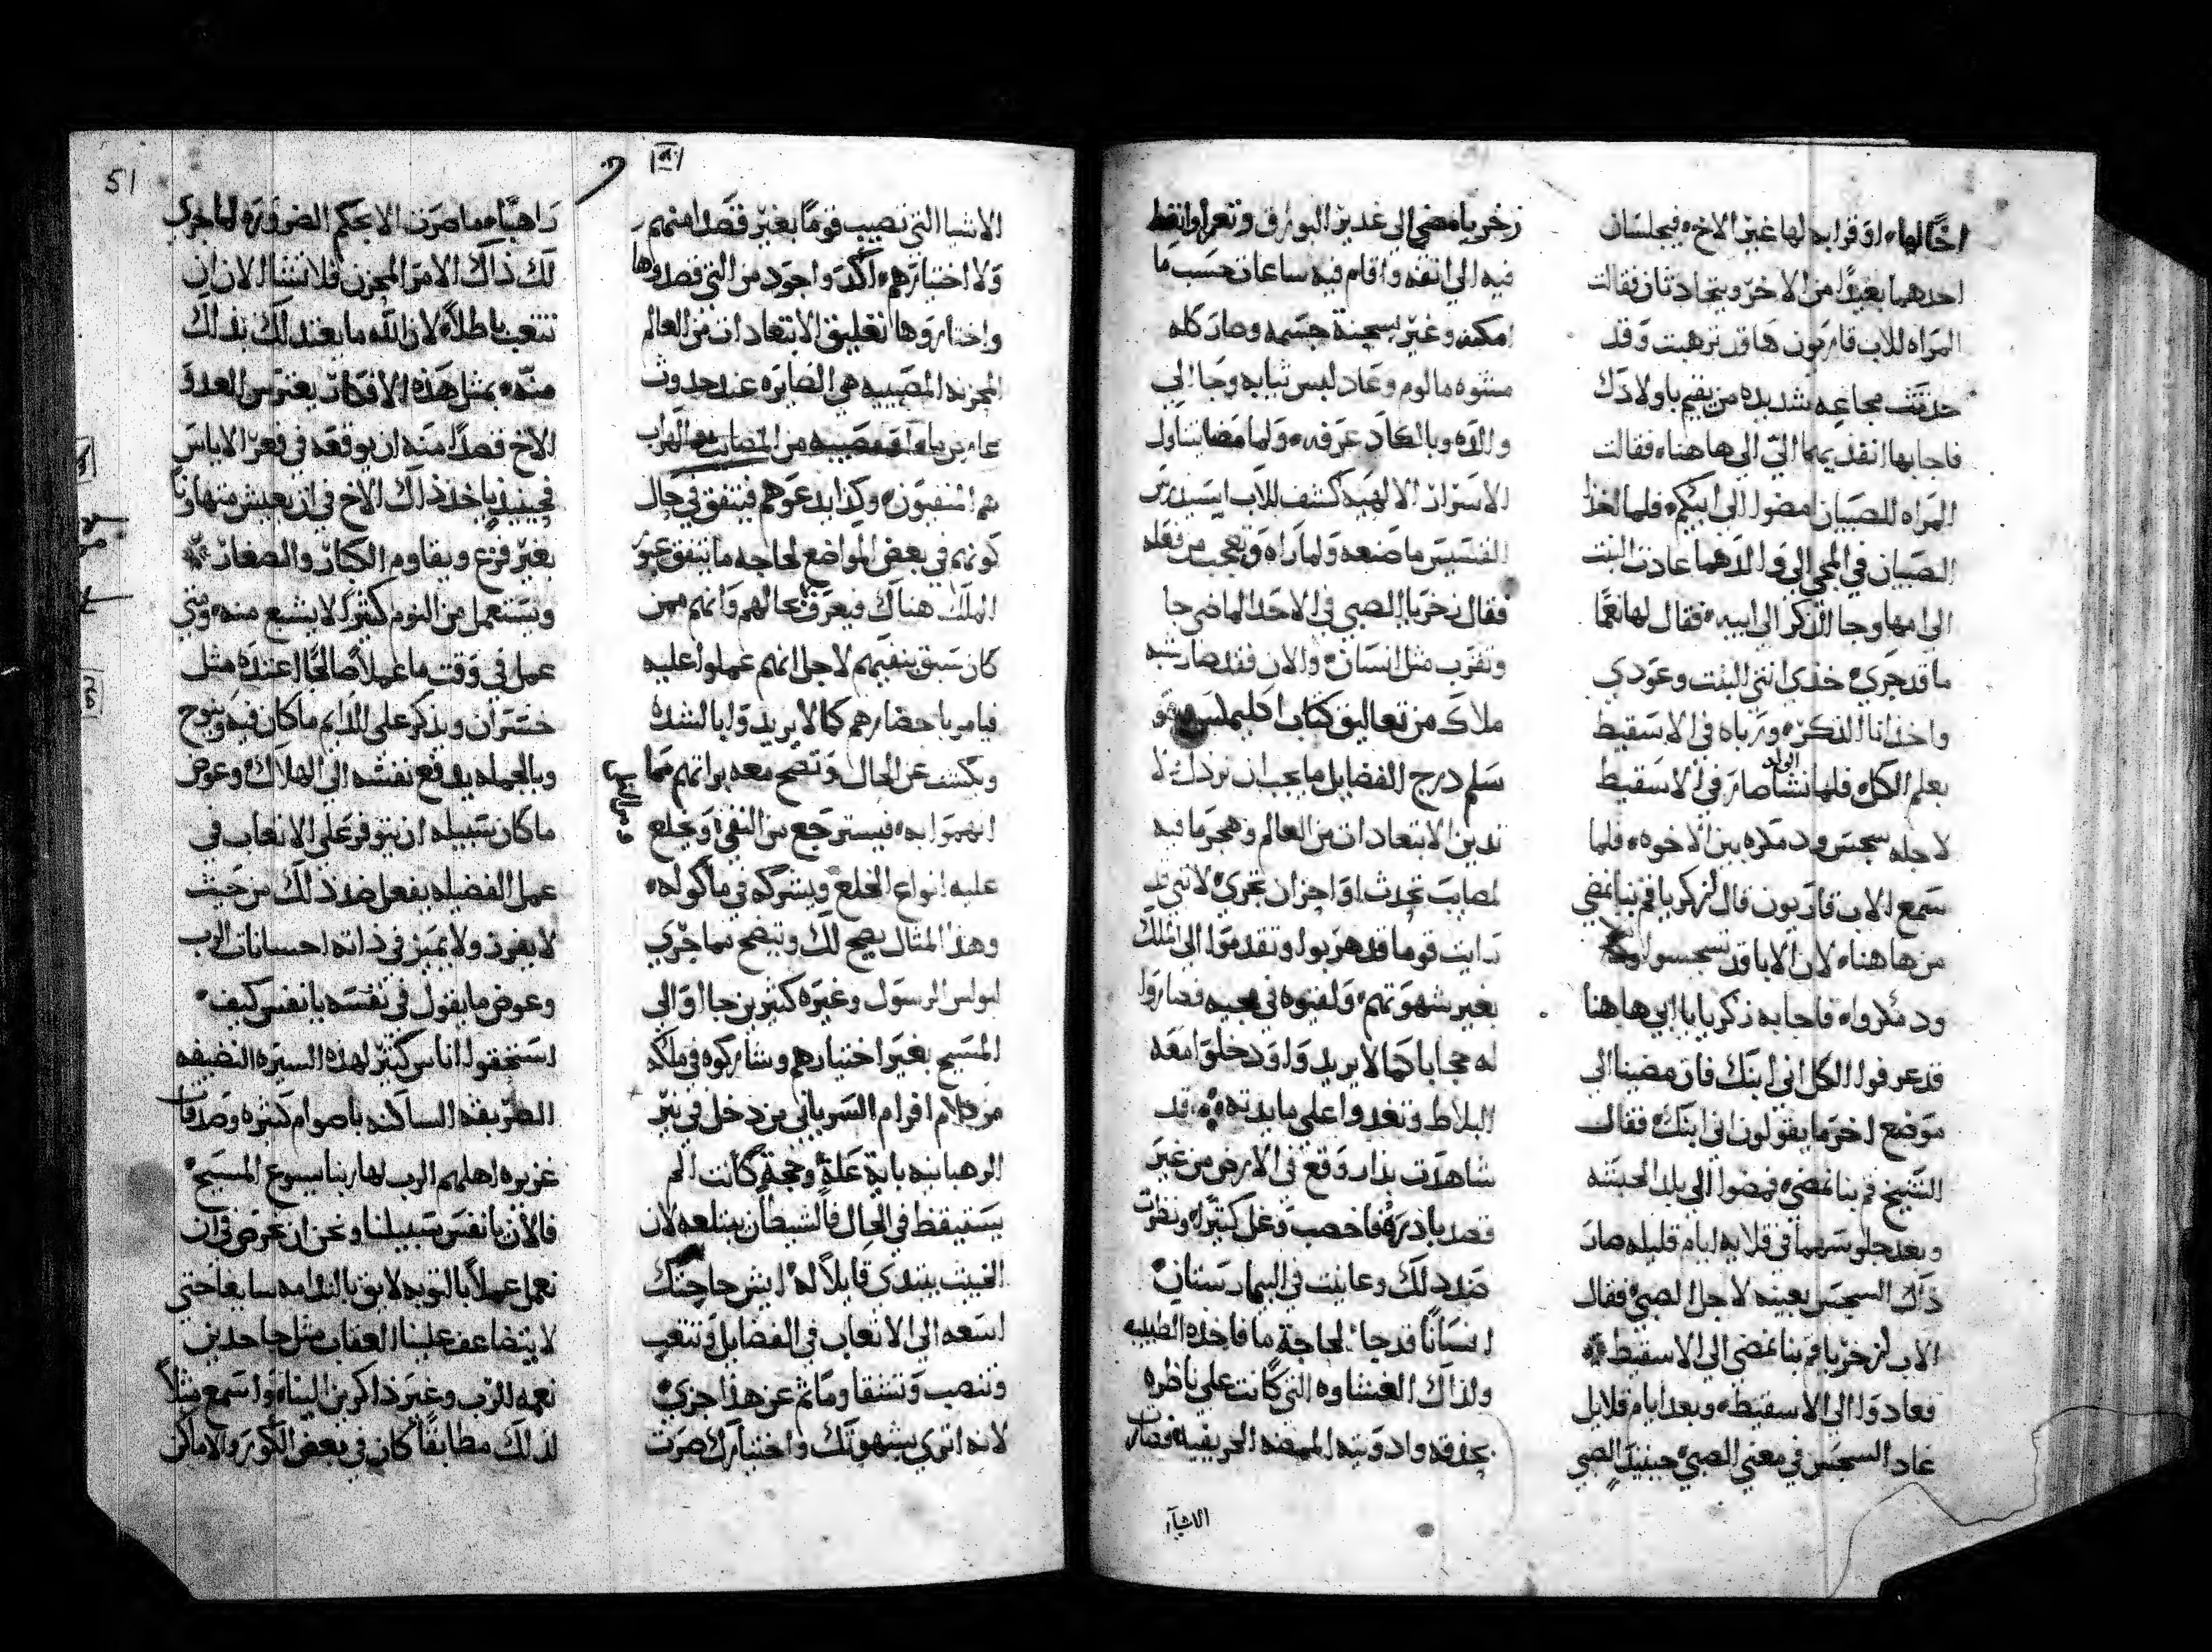 اخًا لها، او قرابه لها غير الاخ، فيجلسان
احدهما بعيدًا من الاخر ويتحادثان فقالت
المراه للاب قاريون ها قد ترهبت وقد
حدثت مجاعه شديده من يقيم باولادك
فاجابها انفديهما اليّ الى هاهناء فقالت
المراه للصبيان امضوا الى ابيكم، فلما اخذا
الصبيان في المجي الى والدهما عادت البنت
الى امها وجا الذكر الى ابيه، فقال لها نعمًا
ما قد جري، خذي انتي البنت وعودي
واخذ انا الذكر، ورباه في الاسقيط
بعلم الكل، فلما نشا الولد صار في الاسقيط
لاجله سجس ودمدمه بين الاخوه، فلما
سمع الاب قاريون قال لزكريا قم بنا نمضي
من هاهنا، لان الابا قد تسجسوا
ودمدموا، فاجابه زكريا يا ابي هاهنا
قد عرفوا الكل اني ابنك فان مضينا الى
موضع اخر ما يقولون اني ابنك، فقال
الشيخ قم بنا نمضي، فمضوا الى بلد الحبشه
وبعد جلوسهما في قلايه ايام قليله صار
ذاك السجس بعينه لاجل الصبي، فقال
الاب لزخريا قم بنا نمضي الى الاسقيط
فعادوا الى الاسقيط، وبعد ايام قلايل
عاد السجس في معني الصبي، حينيذ الصبي
زخريا مضي الى غدير البوارق وتعرا وانغط
فيه الى انفه واقام فيه ساعات حسب ما
امكنه وغير سحنة جسمه وصار كله
مشوه مالوم وعاد لبس ثيابه وجا الى
والده وبالكاد عرفه، ولما مضا يتناول
الاسرار الالهيه كشف للاب ايسيدرس
القسيس ما صنعه ولما راه وتعجب من فعله
فقال زخريا الصبي في الاحد الماضي جا
وتقرب مثل انسان، والان فقد صار شبه
ملاك من تعاليق كتاب اكليمكس هو
سلم درج الفضايل ما يجب ان نرذل
ندين الابتعادات من العالم وهجر ما فيه
لمصايب تحدث او احزان تجري، لانني قد
رايت قوما قد هربوا وتقدموا الى الملك
بغير شهوتهم، ولقيوه في مجيه فصاروا
له حجابا كما لا يريد ولا ود خلوا معه
البلاط وتغدوا على مايدته، قد
شاهدت بذار وقع في الارض من غير
قصد باذره، فاخصب وغل كثيرًا، ونظرت
ضد ذلك وعاينت في البيمارستان
انسانًا قد جا لحاجة ما فاخذه الطبيب
ولذاك الغشاوه التي كانت على ناظره
بحذقه وادويته الممضه الحريفيه فصارت
الاشيآ
الاشيا التي تصيب قومًا بغير قصدًا منهم
ولا اختيارهم، اكد واجود من التي قصدوها
واختاروها تعليق الابتعادات من العالم
المحزنه المصيبيه هي الصايره عند حدوث
عارض ما او مصيبيه من المصايب والهراب
هم المنفيون، وكذا يدعوهم فيتفق في حال
كونهم في بعض المواضع لحاجه ما يتفق عبور
الملك هناك فيعرف حالهم وانهم ممن
كان سبق بنفيهم لاجل انهم عملوا عليه
فيامر باحضارهم كما لا يريد ولا بالشده
ويكشف عن الحال وتضح معه براتهم مما
اتهموا به، فيسترجع من النفي، ويخلع
عليه انواع الخلع ويشركه في ماكوله،
وهذا المثال يصح لك وتيضح مما جري
لبولس الرسول وغيره كثيرين جااوا الى
المسيح بغير اختيارهم وشاركوه في ملكه
من كلام افرام السرياني من دخل في نير
الرهبانيه باية علةٍ وحجةٍ كانت الم
يستيقظ في الحال فالشيطان يبتلعه لان
الخبيث يبتدي قايلاً له، ايش حاجتك
اسعه الى الاتعاب في الفضايل وتتعب
وتنصب وتشقا وما ثم عن هذا جزي،
لانه اتري بشهوتك واختيارك صرت
51
راهبًا، ما صرت الا بحكم الضروره لما جري
لك ذاك الامر المحزن فلا تشا الان ان
تتعب باطلاً، لان الله ما يعتد لك بذلك
منّه، بمثل هذه الافكار يغترس العدو
الاخ قصدًا منه ان يوقعه في قعر الاياس
فحينيذ ياخذ ذلك الاخ في ان يعيش متهاونًا
بغير فزع ويقاوم الكبار والصغار
ويستعمل من النوم كثيرًا لا يشبع منه، ومتي
عمل في وقت ما عملاً صالحًا عنده مثل
خسران ويذكر على الدايم ما كان فيه، وينوح
وبالجمله يدفع نفسه الى الهلاك، وعوض
ما كان سبيله ان يتوفر على الاتعاب في
عمل الفضيله يفعل ضد ذلك من حيث
لا يفرز ولا يميز في ذاته احسانات الرب
وعوض ما يقول في نفسه يا نفس كيف،
استحقوا اناس كثير لهذه السيره النضيفه
الطريقه الساكنه باصوام كثيره وصدقات
غزيره اهلهم الرب لها ربنا يسوع المسيح،
فالان يا نفس سبيلنا ونحن ان نحرص في ان
نعمل عملاً بالتوبه لايق بالندامه سايغا حتي
لا يتضاعف علينا العقاب مثل جاحدين
نعمه الرب وغير ذاكرين البتاه واسمع مثلاً
لذلك مطابقًا كان في بعض الكور والاماكن